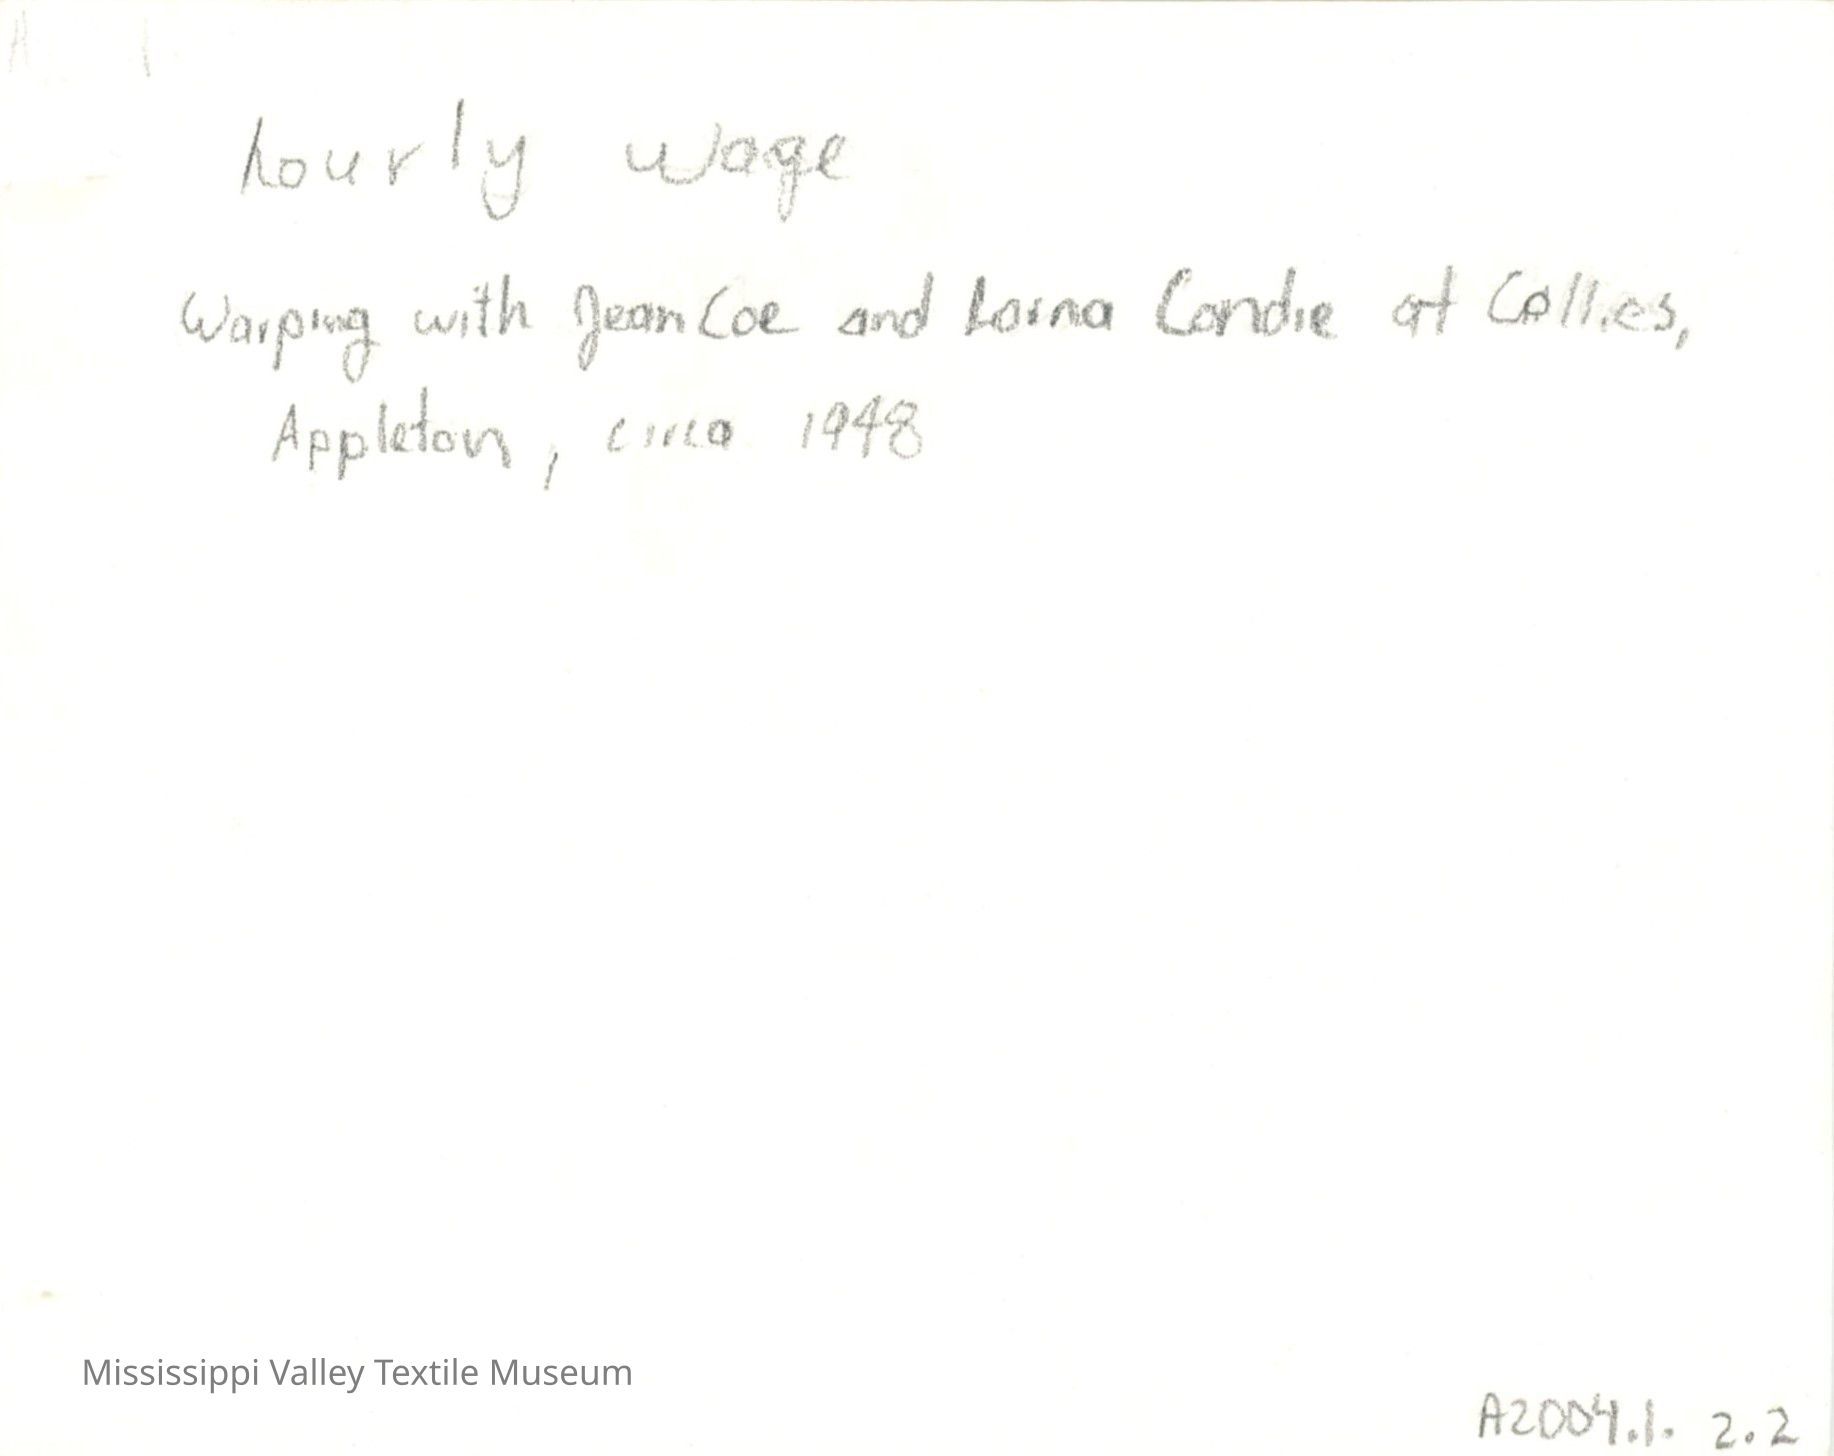 hourly wage
Warping with Jean Coe and Lorna Condie at Collies,
Appleton, circa 1948
Mississippi Valley Textile Museum
A2004.1. 2.2